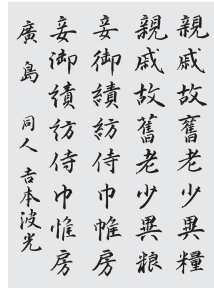 親戚故舊老少異糧
親戚故舊老少異粮
妾御績紡侍巾帷房
妾御績紡侍巾帷房
廣島 同人 吉本波光